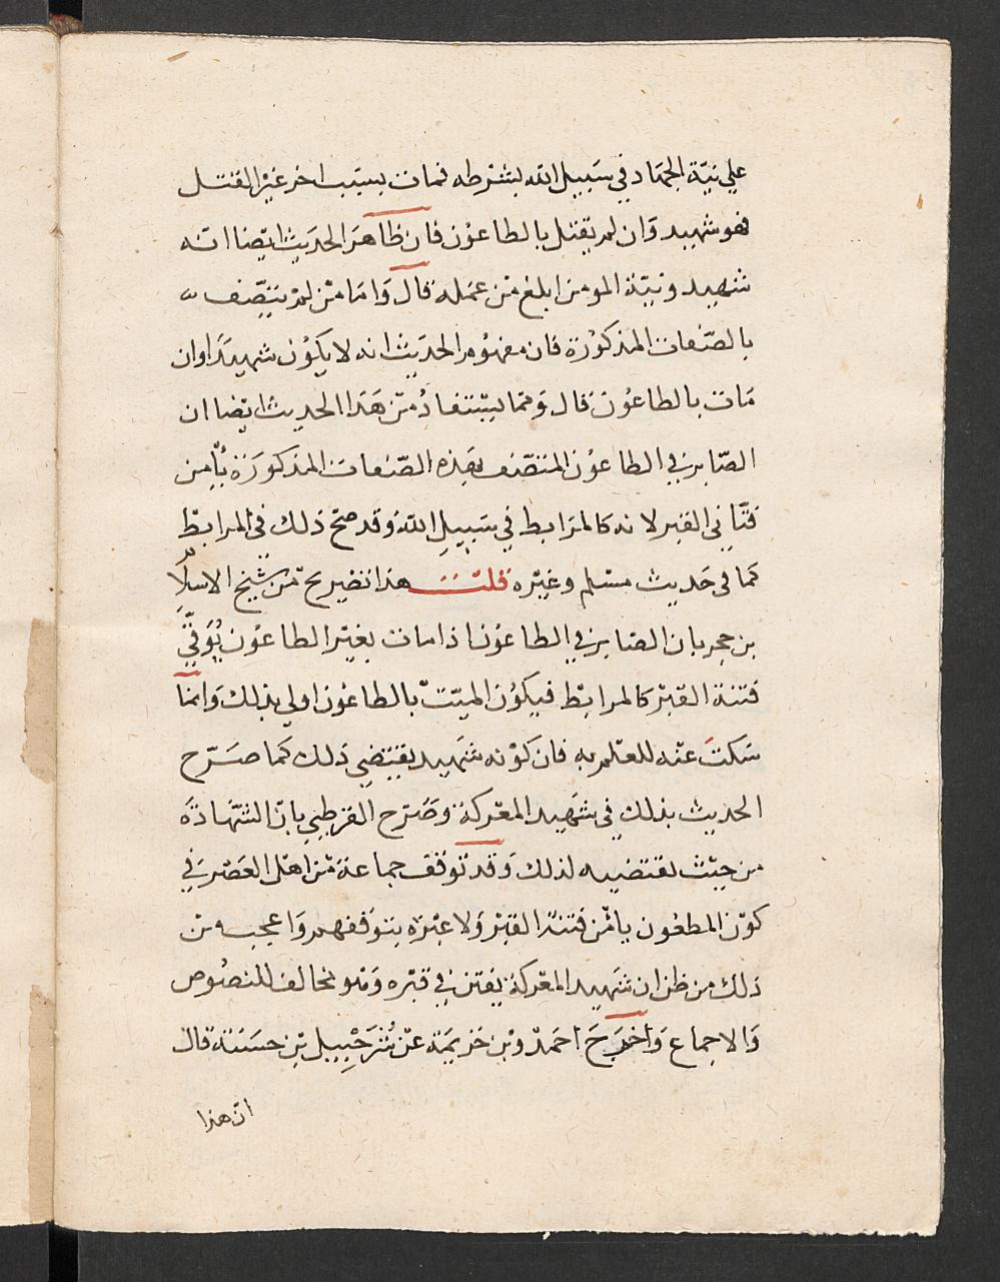 علي نيّة الجهاد في سَبيل الله بشرطه فمات بسبَب اخر غيْر القتل
فهو شهيد وَان لم يقتل بالطاعوْن فان ظاهرَ الحديث ايضا انه
شهيد ونيّة المومن ابلغ منْ عمَله قال وَامّا منْ لمْ يتّصِف
بالصّفات المذكوْرة فان مفهوْم الحديْث انه لا يكوْن شهيدًا وان
مَات بالطاعوْن قال وَممّا يسْتفادُ منْ هَذا الحديث ايضا ان
الصّابر في الطاعوْن المتصّف بهَذه الصّفات المذكورَة يأمن
فتّاني القبر لانه كالمرَابط في سَبيلِ الله وَقد صحّ ذلك في المرابط
كما في حَديث مسْلم وغيْره قلت هذا تصريح منْ شيْخ الاسلام
بن حجر بان الصّابر في الطاعوْن اذا مات بغيْر الطاعوْن يُوَقّي
فتنة القبْر كالمرابط فيكوْن الميّت بالطاعوْن اولي بذلك وَانما
سَكتَ عنْه للعلم به فان كوْنه شَهيد يقتضي ذلك كما صَرّح
الحديث بذلك في شَهيد المعْركة وصَرّح القرطبي بانّ الشّهَادَة
من حيْث تقتضيه لذلك وَقد توَقف جماعة منْ اهْل العَصْر في
كوْن المطعُون يأمْن فتنة القبْر وَلا عبْرَة بتوَقفهم وَاعجب منْ
ذلك من ظن ان شَهيد المعْركة يفتن في قبْره وَهْو مخالف للنصُوص
وَالاجماع وَاخْرَجَ احمَدْ وبْن خزيمَة عنْ شُرَحْبِيل بْن حسَنة قال
انّ هذا